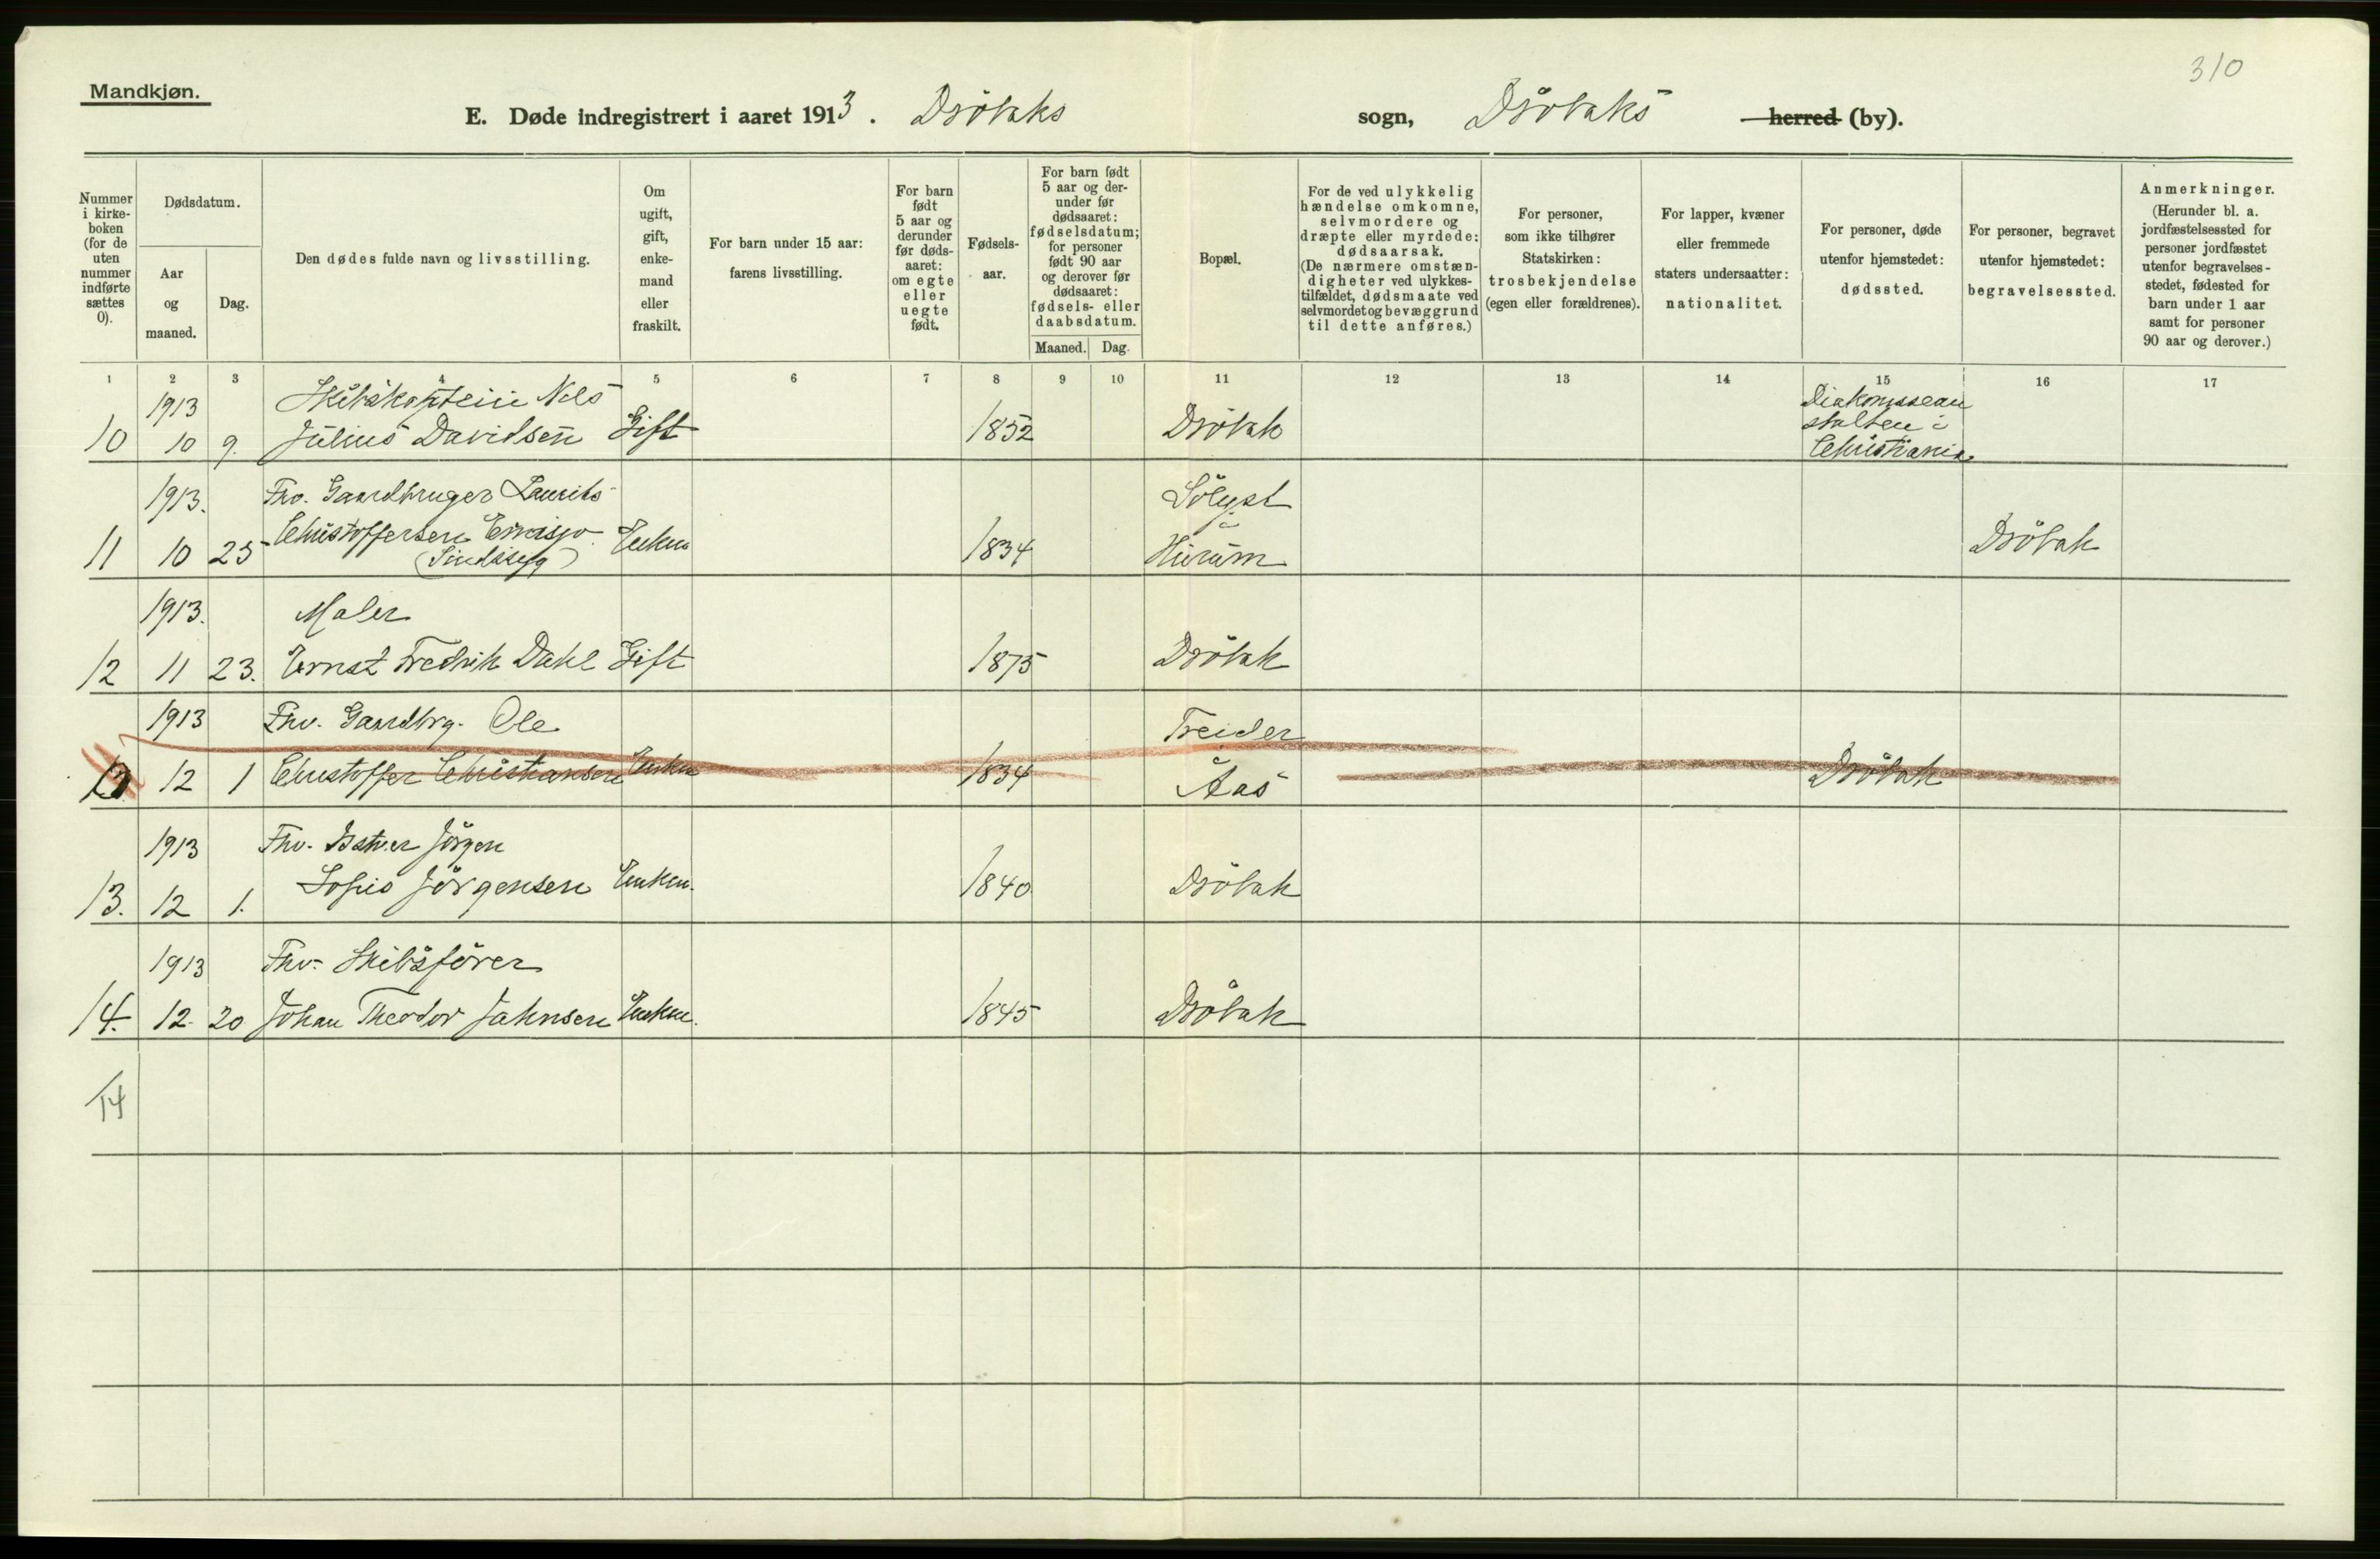 310
Mandkjøn.
E. Døde indregistrert i aaret 1913. Drøbaks sogn, Drøbaks herred (by).
Nummer i kirke-boken (for de uten nummer indførte sættes 0).
Dødsdatum.
Aar og maaned.
Dag.
Den dødes fulde navn og livsstilling.
Om ugift, gift, enke-mand eller fraskilt.
For barn under 15 aar: farens livsstilling.
For barn født 5 aar og derunder før døds-aaret: om egte eller uegte født.
Fødsels-aar.
For barn født 5 aar og der-under før dødsaaret: fødselsdatum; for personer født 90 aar og derover før dødsaaret: fødsels- eller daabsdatum.
Maaned. Dag.
Bopæl.
For de ved ulykkelig hændelse omkomne, selvmordere og dræpte eller myrdede: dødsaarsak. (De nærmere omstæn-digheter ved ulykkes-tilfældet, dødsmaate ved selvmordet og bevæggrund til dette anføres.)
For personer, som ikke tilhører Statskirken: trosbekjendelse (egen eller forældrenes).
For lapper, kvæner eller fremmede staters undersaatter: nationalitet.
For personer, døde utenfor hjemstedet: dødssted.
For personer, begravet utenfor hjemstedet: begravelsessted.
Anmerkninger. (Herunder bl. a. jordfæstelsessted for personer jordfæstet utenfor begravelses-stedet, fødested for barn under 1 aar samt for personer 90 aar og derover.)
1 2 3 4 5 6 7 8 9 10 11 12 13 14 15 16 17
1913 Skibskaptein Nils Diakonissean
stalten i
10 10 9. Julius Davidsen Gift 1852 Drøbak Christiania
1913. Fhv. Gaardbruger Laurits Sölyst
Christoffersen i
11 10 25 (Sindssyg) Enkem 1834 Hurum Drøbak
1913. Maler
12 11 23. Ernst Fredrik Dahl Gift 1875 Drøbak
1913 Fhv. Gaardbrg. Ole Treider
12 1 Christoffer Christiansen Enkem 1834 Aas Drøbak
1913 Fhv. Jörgen
13. 12 1. Jörgensen Enkem. 1840 Drøbak
1913 Fhv. Skibsfører
14. 12 20 Johan Theodor Jahnsen Enkem. 1845 Drøbak
14